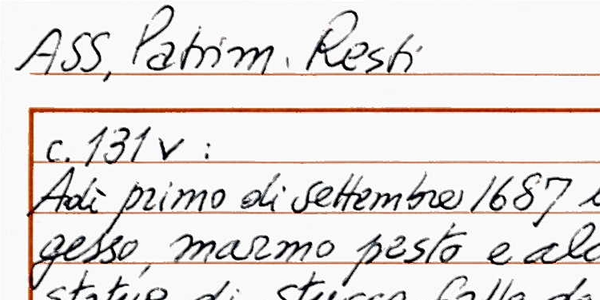 ASS, Patrim. Resti
c. 131 v :
Adì primo di settembre 1687
gesso, marmo pesto e
statue di stucco fatte